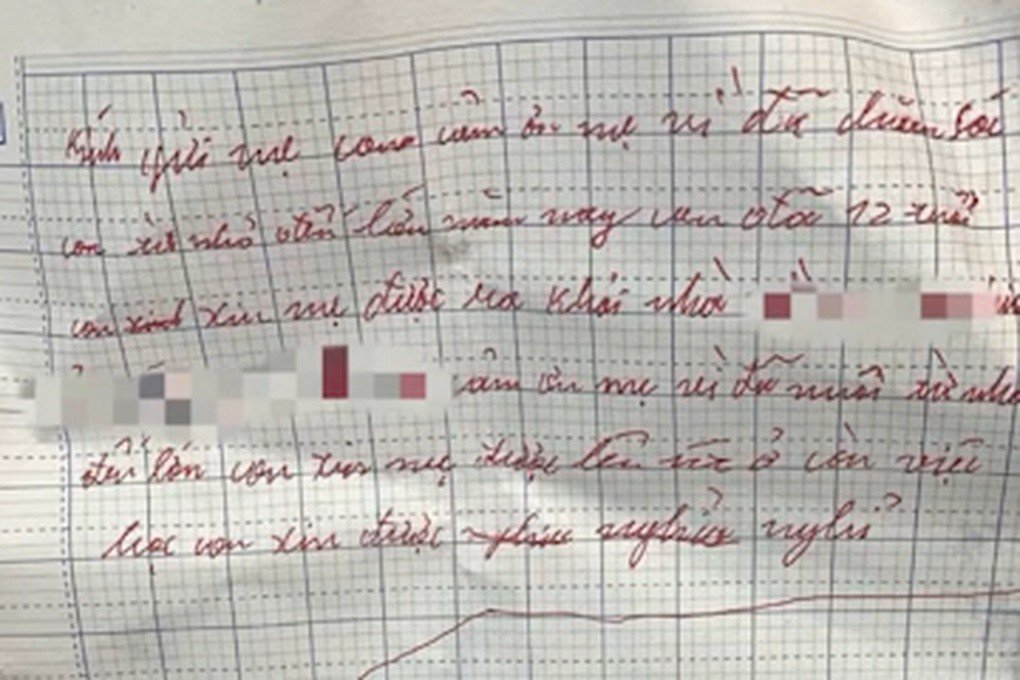 Kính gửi mẹ con cảm ơn mẹ vì đã chăm sóc
con từ nhỏ đến lớn năm nay con đã 12 tuổi
con xin mẹ được ra khỏi nhà
cảm ơn mẹ vì đã nuôi từ nhỏ
đến lớn con xin mẹ được lên ở còn việc
học con xin được nghỉ